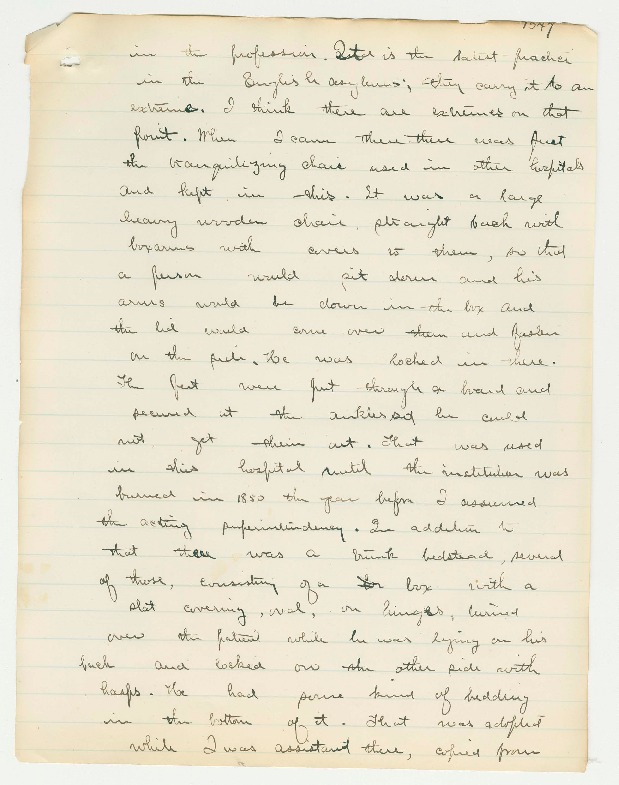 1547
in the profession. It is the latest practice
in the English asylums; they carry it to an
extreme. I think there are extremes on that
point. When I came there there was first
the tranquilizing chair used in other hospitals
and kept in this. It was a large
heavy wooden chair, straight back with
box arms with covers to them, so that
a person would sit down and his
arms would be down in the box and
the lid would come over them and fasten
on the side. He was locked in there.
The feet were put through a board and
secured at the ankles so he could
not get them out. That was used
in this hospital until the institution was
burned in 1850 the year before I assumed
the acting superintendency. In addition to
that there was a bedstead, several
of those, consisting of a box with a
slat covering, oval, on hinges, turned
over the patient while he was lying on his
back and locked on the other side with
hasps. He had some kind of bedding
in the bottom of it. That was adopted
while I was assistant there, copied from